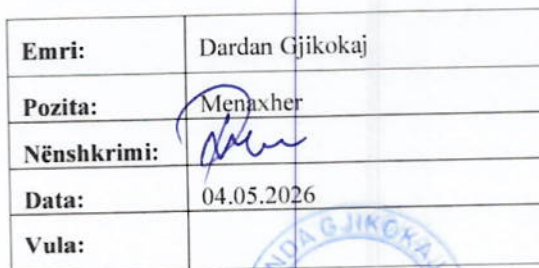 Emri: Dardan Gjikokaj
Pozita: Menaxher
Nënshkrimi:
Data: 04.05.2026
Vula:
GJIKOKAJ